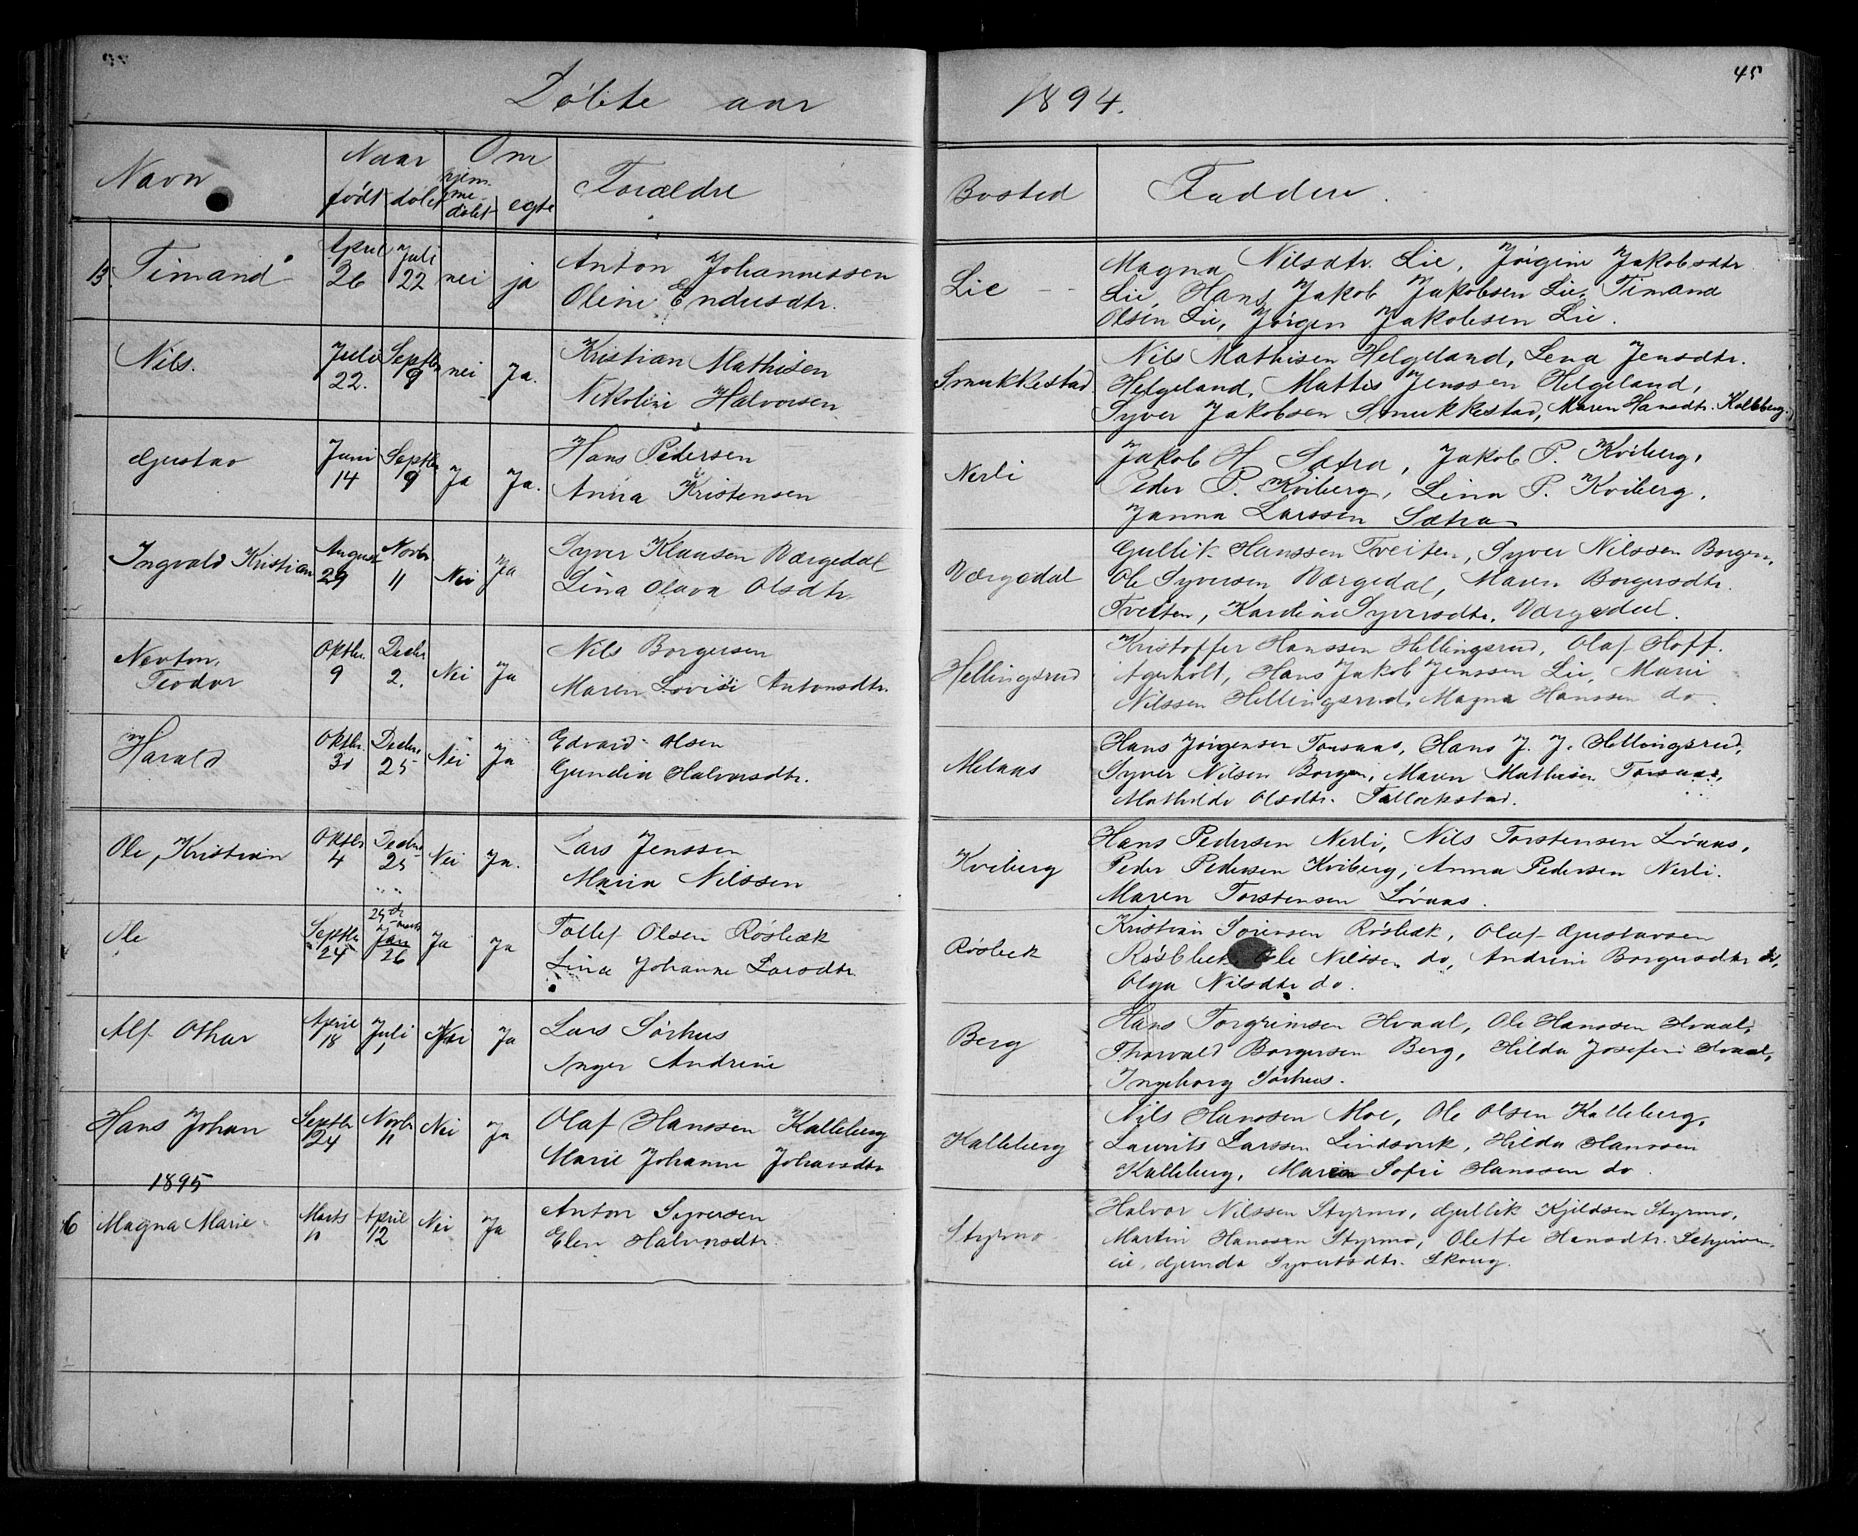 Döbte aar 1894.
45
Navn Naar født døbt Om hjem-me-døbt egte Forældre Bosted Faddere.
13 Timand April 26 Juli 22 nei ja Anton Johannessen
Oline Endresdtr.
Lie
Magna Nilsdtr. Lie, Jørgine Jakobsdtr.
Lie, Hans Jakob Jakobsen Lie, Timand
Olsen Lie, Jørgen Jakobsen Lie.
Nils. Juli 22. Septbr 9 nei Ja. Kristian Mathisen
Nikoline Halvorsen
Smukkestad
Nils Mathisen Helgeland, Lena Jensdtr.
Helgeland, Mattis Jenssen Helgeland,
Syver Jakobsen Smukkestad, Maren Hansdtr. Kalleberg.
Gustav Juni 14 Septbr 9 Ja Ja. Hans Pedersen
Anna Kristensen
Nerli
Jakob H. Sætra, Jakob P. Kviberg,
Peder P. Kviberg, Lina P. Kviberg,
Janna Larssen Sætra
Ingvald Kristian August 29 Novbr 11 Nei Ja Syver KlausenVærgedal
Lina Olava Olsdtr.
Værgedal
Gullik Hanssen Tveiten, Syver Nilssen Borgen,
Ole Syversen Værgedal, Maren Borgersdtr.
Tveiten, Karoline Syversdtr. Værgedal.
Nevton, Oktbr. 9 Decbr 2. Nei Ja Nils Borgersen
Teodor Maren Lovise Antonsdtr.
Hellingsrud
Kristoffer Hanssen Hellingsrud, Olaf Hoff.
Agerholt, Hans Jakob Jenssen Lie, Marie
Nilssen Hellingsrud, Magna Hanssen do.
Harald Oktbr. 30 Decbr 25 Nei Ja Edvard Olsen
Gundia Halvorsdtr.
Melaas
Hans Jørgensen Torsaas, Hans J. J. Hellingsrud,
Syver Nilsen Borgen, Maren Mathisen Torsaas,
Mathilde Olsdtr. Tollockstad.
Ole, Kristian Oktbr 4 Decbr 25 Nei Ja. Lars Jenssen
Maria Nilssen
Kviberg
Hans Pedersen Nerli, Nils Torstensen Løvaas,
Peder Pedersen Kviberg, Anna Pedersen Nerli.
Maren Torstensen Løvaas.
Ole Septbr 24 Jan 26 Ja Ja Tollef Olsen Rösbæk
Lina Johanne Larsdtr
Rösbek
Kristian Sørensen Rösbæk, Olaf Gustavsen
Rösbæk, Ole Nilssen do, Andrine Borgersdtr do,
Olga Nilsdtr do.
Alf Othar April 18 Juli 1 Nei Ja Lars Sørhus
Inger Andrine
Berg
Hans Torgrimsen Hvaal, Ole Hanssen Hvaal,
Thorvald Borgersen Berg, Hilda Josefine Hvaal,
Ingeborg Sørhus.
Hans Johan Septbr 24 Novbr 11 Nei Ja Olaf Hanssen Kalleberg
Marie Johanne Johansdtr
Kalleberg
Nils Hanssen Moe, Ole Olsen Kalleberg,
Laurits Larssen Lindsvik, Hilda Hanssen
Kalleberg, Maren Sofie Hanssen do.
1895
6 Magna Marie Marts 11 April 12 Nei Ja Anton Syversen
Elen Halvorsdtr.
Styrmo
Halvor Nilssen Styrmo, Gullik Kjeldsen Styrmo,
Martin Hanssen Styrmo, Olette Hansdtr.
Gunda Syvertsdtr. Skoug.